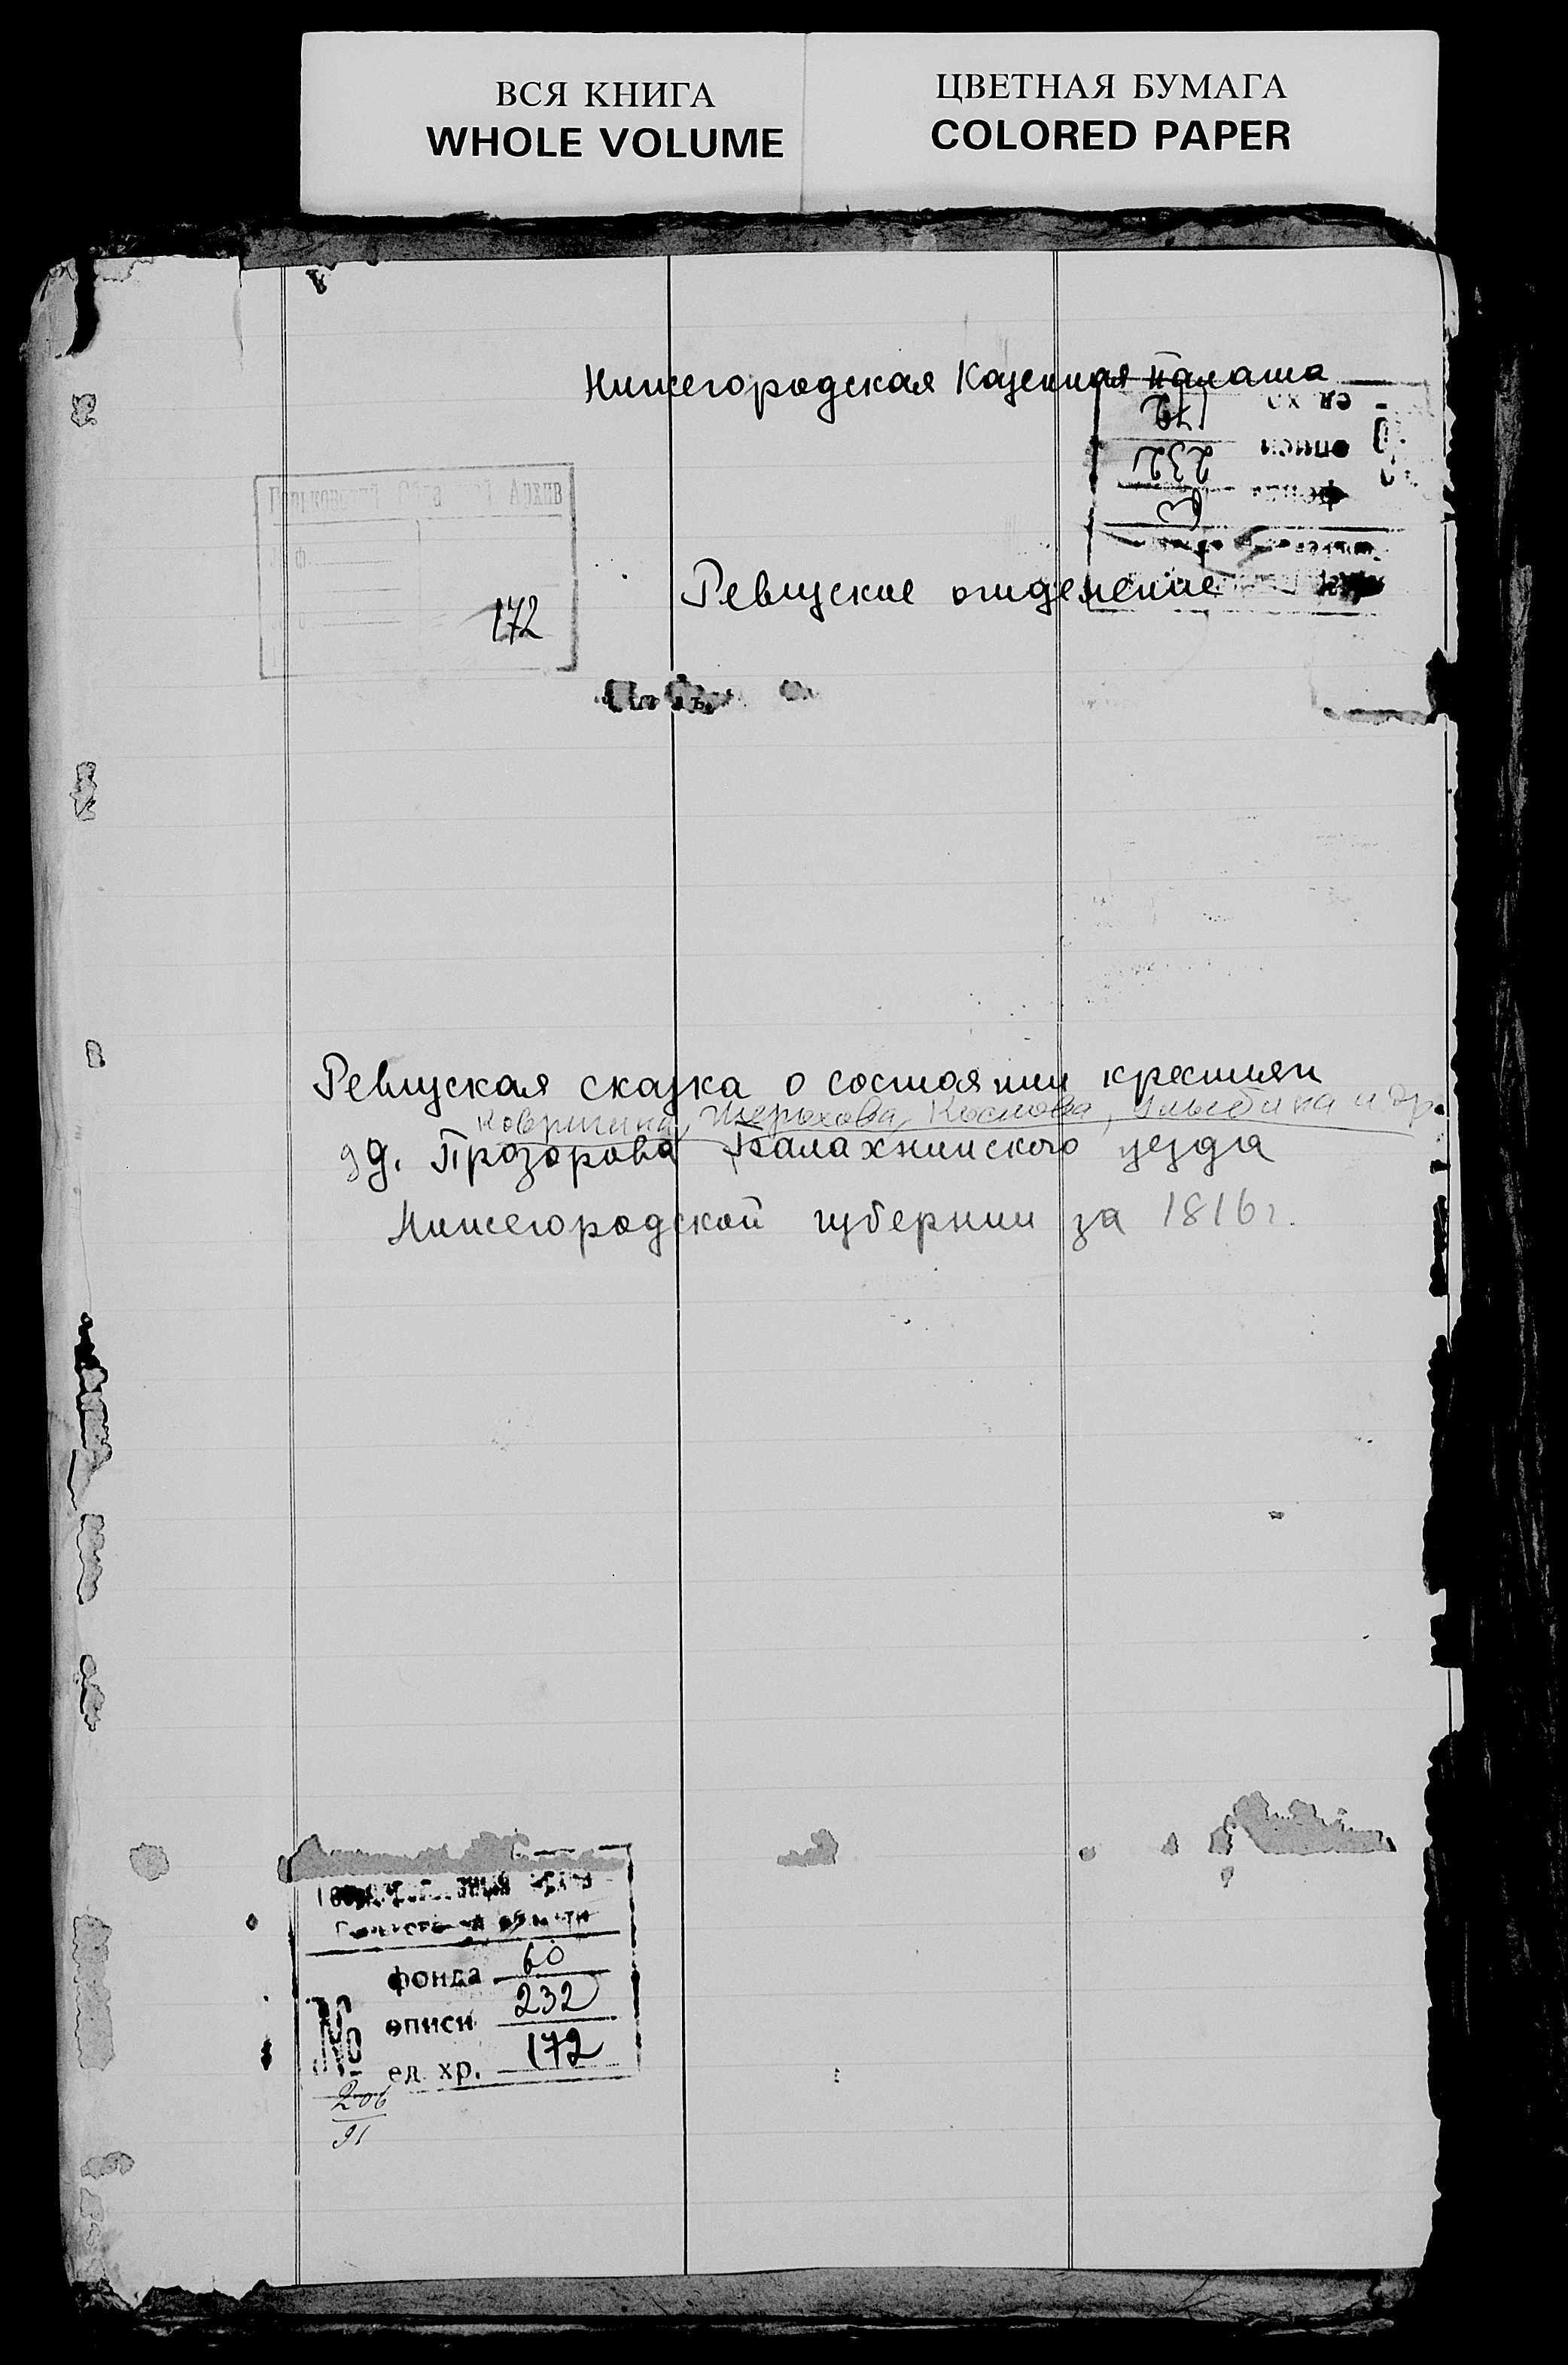 ВСЯ КНИГА
WHOLE VOLUME
ЦВЕТНАЯ БУМАГА
COLORED PAPER
Нижегородская Казенная палата
ед. хр. 172
описи 232
фонда 60
Архив
172
Ревизское отделение
Ревизская сказка о состоянии крестьян
Ковригина, Шерохова, Кислова, Улыбина и др.
д. Прозорова Балахнинского уезда
Нижегородской губернии за 1816 г.
фонда 60
№ описи 232
ед. хр. 172
206
91